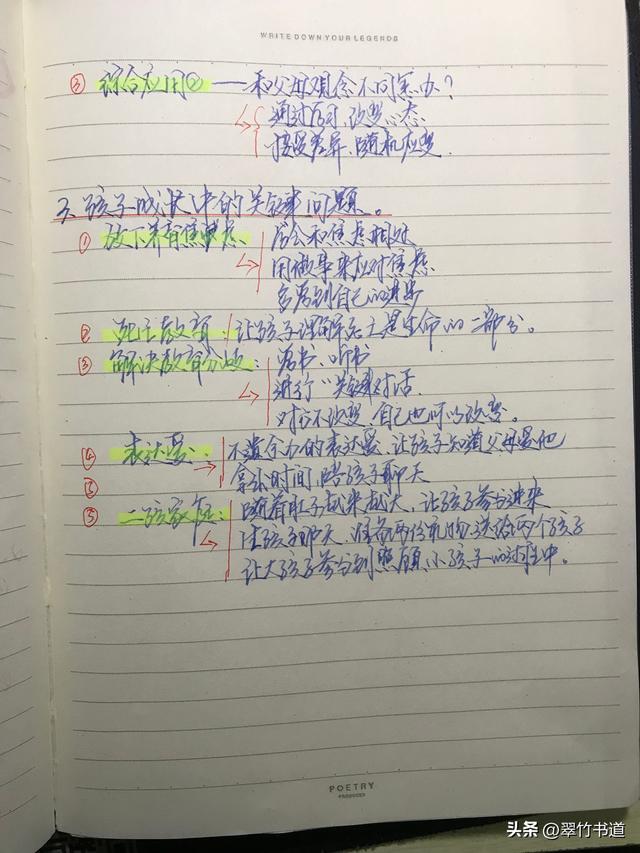 WRITE DOWN YOUR LEGENDS
③ 综合应用② —— 和父母观念不同怎办?
通过学习,改变心态
接受差异,随机应变
3、孩子成长中的关键问题。
① 放下养育焦虑: 学会和焦虑相处
用做事来应对焦虑
多看到自己的进步
② 死亡教育: 让孩子理解死亡是生命的一部分。
③ 解决教育分歧: 看书、听书
进行"关键对话
对方不改变,自己也可以改变。
④ 表达爱: 不遗余力的表达爱,让孩子知道父母爱他
⑤ 拿出时间,陪孩子聊天
⑤ 二孩家庭: 随着肚子越来越大,让孩子参与进来
陪孩子聊天,准备两份礼物,送给两个孩子
让大孩子参与到照顾小孩子的过程中。
POETRY
PRODUCED
头条 @翠竹书道